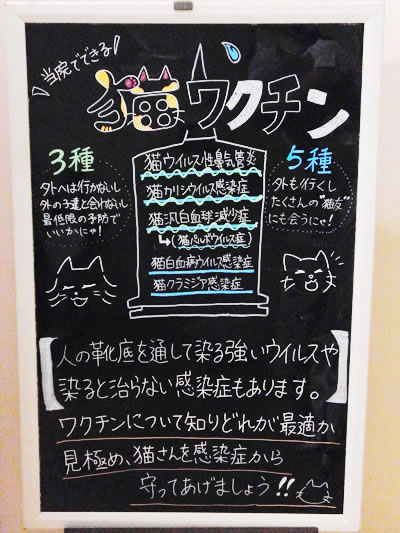 当院でできる
猫ワクチン
3種
外へは行かないし
外の子達と会わない
最低限の予防で
いいかにゃ!
猫ウイルス性鼻気管炎
猫カリシウイルス感染症
猫汎白血球減少症
(猫パルボウイルス症)
猫白血病ウイルス感染症
猫クラミジア感染症
5種
外も行くし
たくさんの"猫友"
にも会うにゃ!
人の靴底を通して染る強いウイルスや
染ると治らない感染症もあります。
ワクチンについて知りどれが最適か
見極め、猫さんを感染症から
守ってあげましょう!!